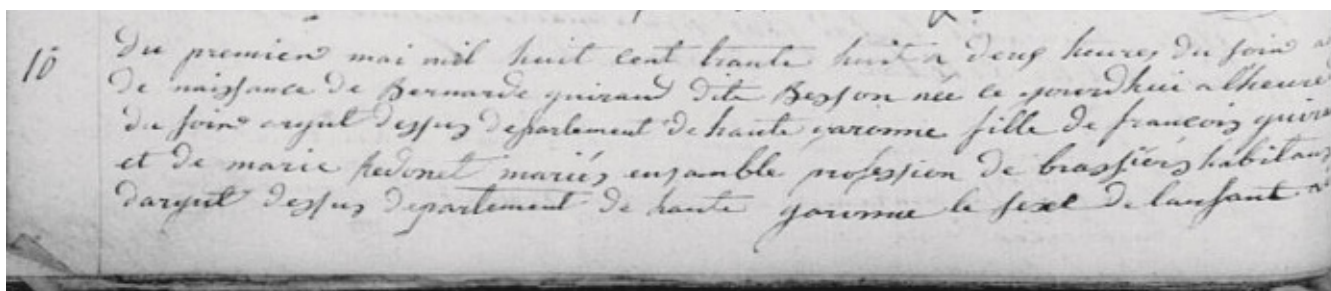 10
Du premier mai mil huit cent trante huit a deus heures du soir a
de naissance de Bernarde guiraud dite Besson nee ce jourdhui a lheure
du soir argut dessus departement de haute garonne fille de francois guira
et de marie Redonet mariés ensamble profession de brassiers habitans
dargut dessus departement de haute garonne le sexe de lanfant a